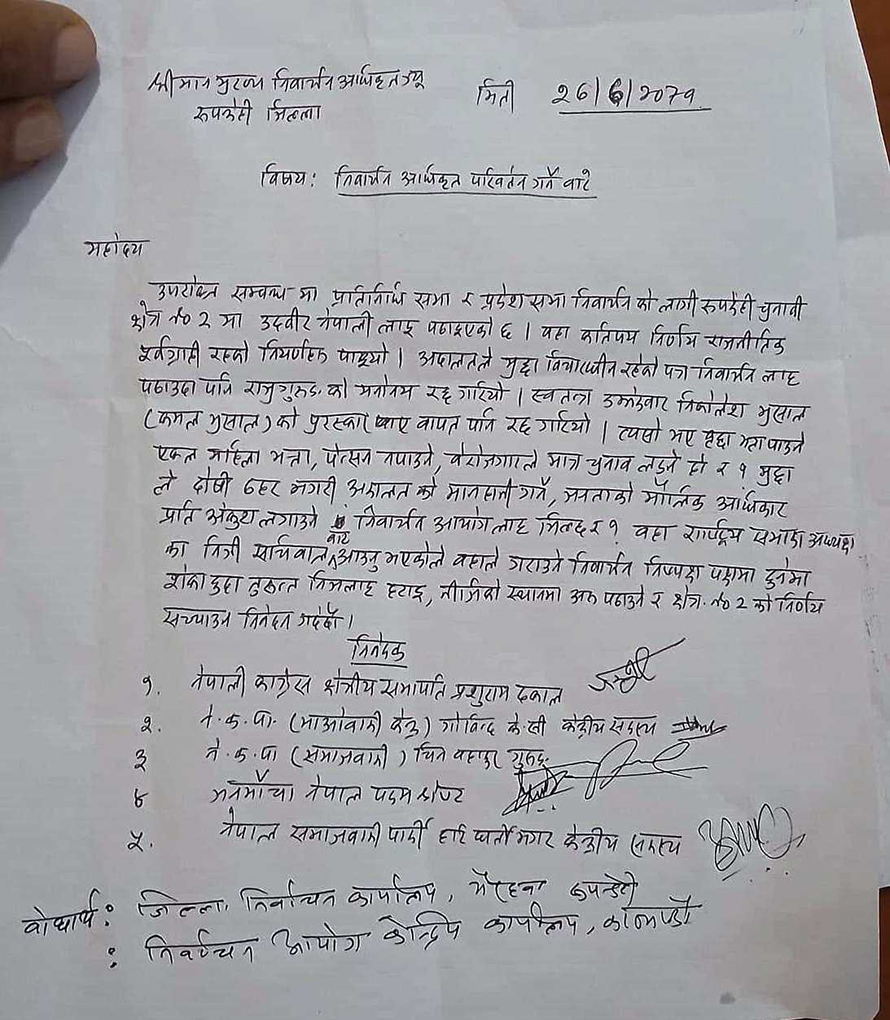 श्रीमान मुख्य निर्वाचन अधिकृत ज्यू
रुपन्देही जिल्ला
मिती २६/६/२०७९
विषय: निर्वाचन अधिकृत परिवर्तन गर्ने बारे
महोदय
उपरोक्त सम्बन्ध मा प्रतिनिधि सभा र प्रदेश सभा निर्वाचन को लागी रुपन्देही चुनावी
क्षेत्र नं० २ मा उदवीर नेपाली लाइ पठाइएको छ । वहा कतिपय निर्णय राजनीतिक
पूर्वाग्राही रहको पाइयो । अदालतले मुद्दा विचाराधीन रहेको पत्र निर्वाचन लाइ
पठाउदा पनि राजु गुरुङ को मनोनय रद्द गरियो । स्वतन्त्र उम्मेदवार निकोलेश भुसाल
(कमल भुसाल) को पुरस्कार पाए वापत पनि रद्द गरियो । त्यसो भए वृद्धा भत्ता पाउने
एकल महिला भत्ता, पेन्सन नपाउने, वेरोजगारले मात्र चुनाव लड्ने हो र ? मुद्दा
ले दोषी ठहर नगरी अदालत को मानहानी गर्ने, जनताको मौलिक अधिकार
प्रति अंकुश लगाउने निर्वाचन आयोग लाइ मिल्दछ र ? वहा राष्ट्रिय सभाका अध्यक्ष
का निजी सचिवालय बाट आउनु भएकोले वहाले गराउने निर्वाचन निष्पक्ष पक्षमा हुनेमा
शंका हुदा तुरुन्त निजलाइ हटाइ, नीजको स्थानमा अरु पठाउन र क्षेत्र. नं० २ को निर्णय
सच्याउन निवेदन गर्दछौं ।
निवेदक
१. नेपाली कांग्रेस क्षेत्रीय सभापति प्रशुराम ढकाल
२. ने. क. पा. (माओवादी केन्द्र) गोविन्द के.सी केन्द्रीय सदस्य
३ ने. क. पा (समाजवादी) चित्र वहादुर गुरुङ
४ जनमोर्चा नेपाल पदम श्रेष्ट
५. नेपाल समाजवादी पार्टी हरि घर्तीमगर केन्द्रीय सदस्य
वोधार्थ: जिल्ला निर्वाचन कार्यालय, भैरहवा रुपन्देही
: निर्वाचन आयोग केन्द्रिय कार्यालय, काठमाण्डौ